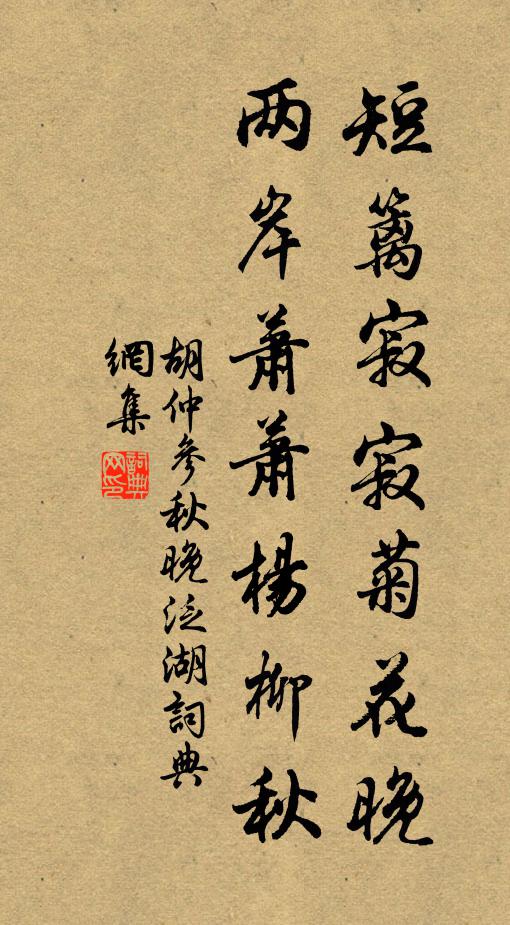 短篱寂寂菊花晚
两岸萧萧杨柳秋
胡仲参秋晚泛湖詞典
網集
詞典
网印